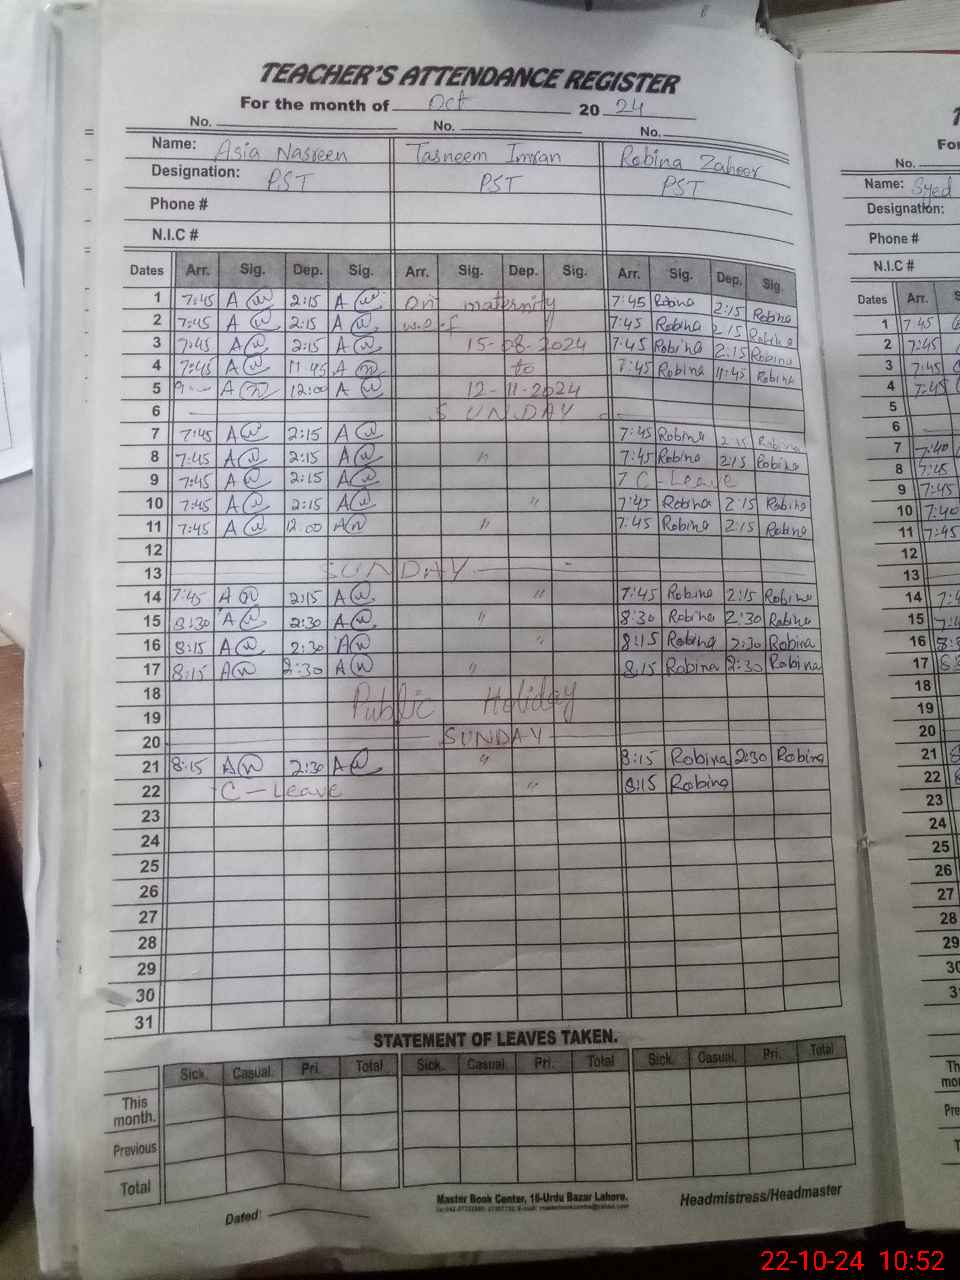 TEACHER'S ATTENDANCE REGISTER
For the month of Oct 20 24
No. No. No.
Name: Asia Nasreen Tasneem Imran Robina Zaheer
Designation: PST PST PST
Phone #
N.I.C #
Dates Arr. Sig. Dep. Sig. Arr. Sig. Dep. Sig. Arr. Sig. Dep. Sig.
1 7:45 2:15 On maternity 7:45 Robina 2:15 Robina
2 7:45 2:15 w.e.f 7:45 Robina 2:15 Robina
3 7:45 2:15 15-08-2024 7:45 Robina 2:15 Robina
4 7:45 11:45 to 7:45 Robina 11:45 Robina
5 12:00 12-11-2024
6 SUNDAY
7 7:45 2:15 7:45 Robina 2:15 Robina
8 7:45 2:15 " 7:45 Robina 2:15 Robina
9 7:45 2:15 C-Leave
10 7:45 2:15 " 7:45 Robina 2:15 Robina
11 7:45 12:00 " 7:45 Robina 2:15 Robina
12
13 SUNDAY
14 7:45 2:15 " 7:45 Robina 2:15 Robina
15 8:30 2:30 " 8:30 Robina 2:30 Robina
16 8:15 2:30 " 8:15 Robina 2:30 Robina
17 8:15 2:30 " 8:15 Robina 2:30 Robina
18 Public Holiday
19
20 SUNDAY
21 8:15 2:30 " 8:15 Robina 2:30 Robina
22 C-Leave " 8:15 Robina
23
24
25
26
27
28
29
30
31
STATEMENT OF LEAVES TAKEN.
Sick. Casual. Pri. Total Sick. Casual. Pri. Total Sick. Casual. Pri. Total
This month.
Previous
Total
Master Book Center, 16-Urdu Bazar Lahore.
Dated: Headmistress/Headmaster
No.
Name: Syed
Designation:
Phone #
N.I.C #
Dates Arr.
1 7:45
2 7:45
3 7:45
4 7:45
5
6
7 7:40
8 7:45
9 7:45
10 7:40
11 7:45
12
13
14
15
16
17
18
19
20
21
22
23
24
25
26
27
28
29
30
22-10-24 10:52